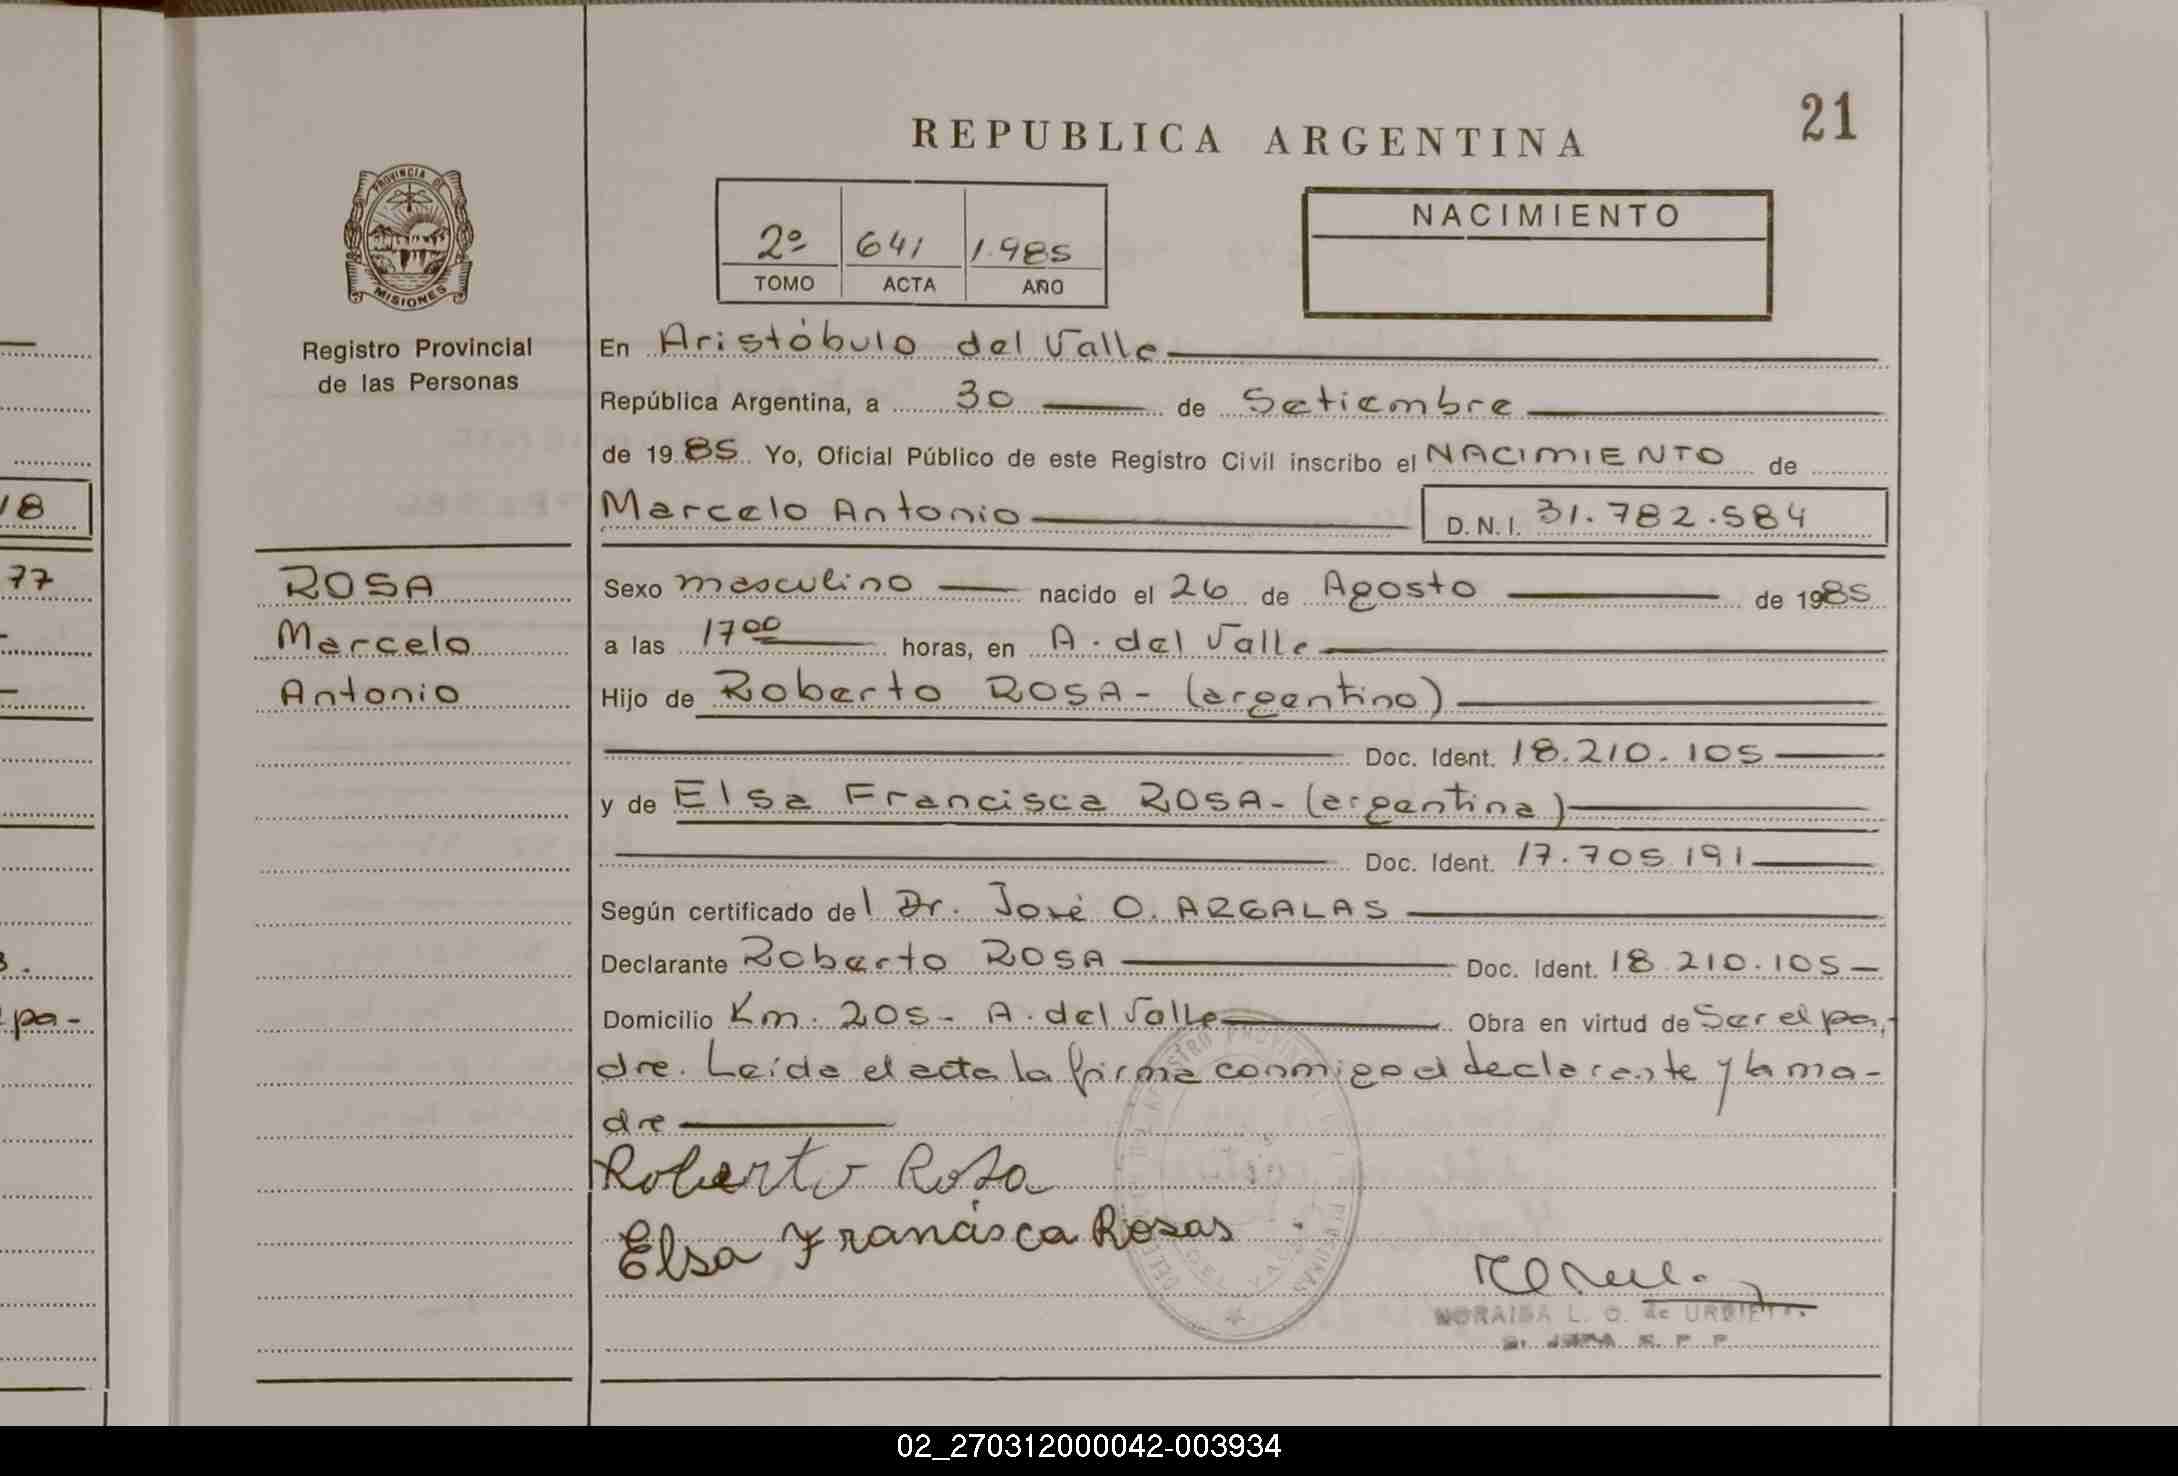 21
REPUBLICA ARGENTINA
PROVINCIA DE
MISIONES
Registro Provincial
de las Personas
2º 641 1.985
TOMO ACTA AÑO
NACIMIENTO
En Aristóbulo del Valle
República Argentina, a 30 de Setiembre
de 1985 Yo, Oficial Público de este Registro Civil inscribo el NACIMIENTO de
Marcelo Antonio D.N.I. 31.782.584
ROSA
Marcelo
Antonio
Sexo masculino nacido el 26 de Agosto de 1985
a las 17 00 horas, en A. del Valle
Hijo de Roberto ROSA- (argentino)
Doc. Ident. 18.210.105
y de Elsa Francisca ROSA- (argentina)
Doc. Ident. 17.705.191
Según certificado del Dr. José O. ARGALAS
Declarante Roberto ROSA Doc. Ident. 18.210.105-
Domicilio Km. 205- A. del Valle Obra en virtud de Ser el pa-
dre. Leída el acta la firma conmigo el declarante y la ma-
dre
Roberto Rosa
Elsa Francisca Rosas
NORAIBA L. O. de URBIETA
18
77
pa-
02_270312000042-003934